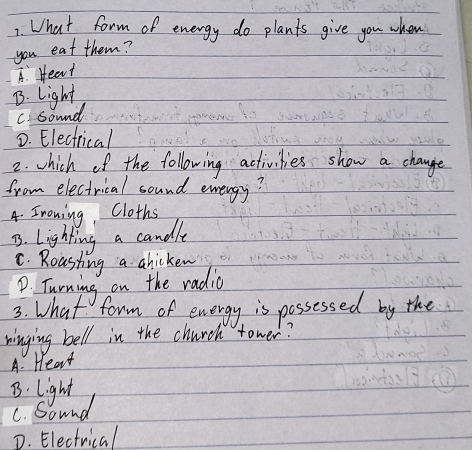 1. What form of energy do plants give you when
you eat them?
A. Heat
B. Light
C. Sound
D. Electrical
2. which of the following activities show a change
from electrical sound energy?
A. Ironing Cloths
B. Lighting a candle
C. Roasting a chicken
D. Turning on the radio
3. What form of energy is possessed by the
ringing bell in the church tower?
A. Heat
B. Light
C. Sound
D. Electrical